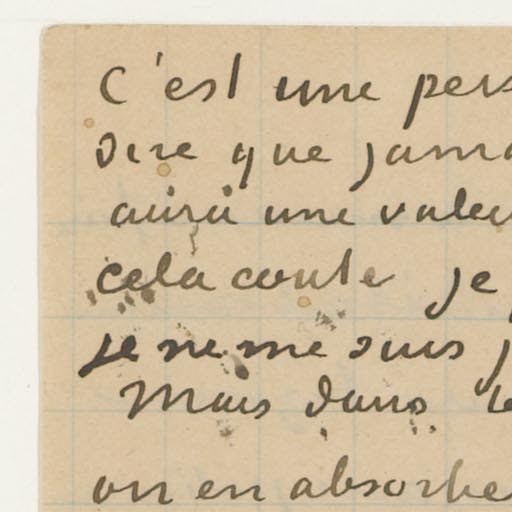 C'est une pers
dire que jama
aura une valeu
cela coute je
je ne me suis j
Mais dans le
on en absorbe